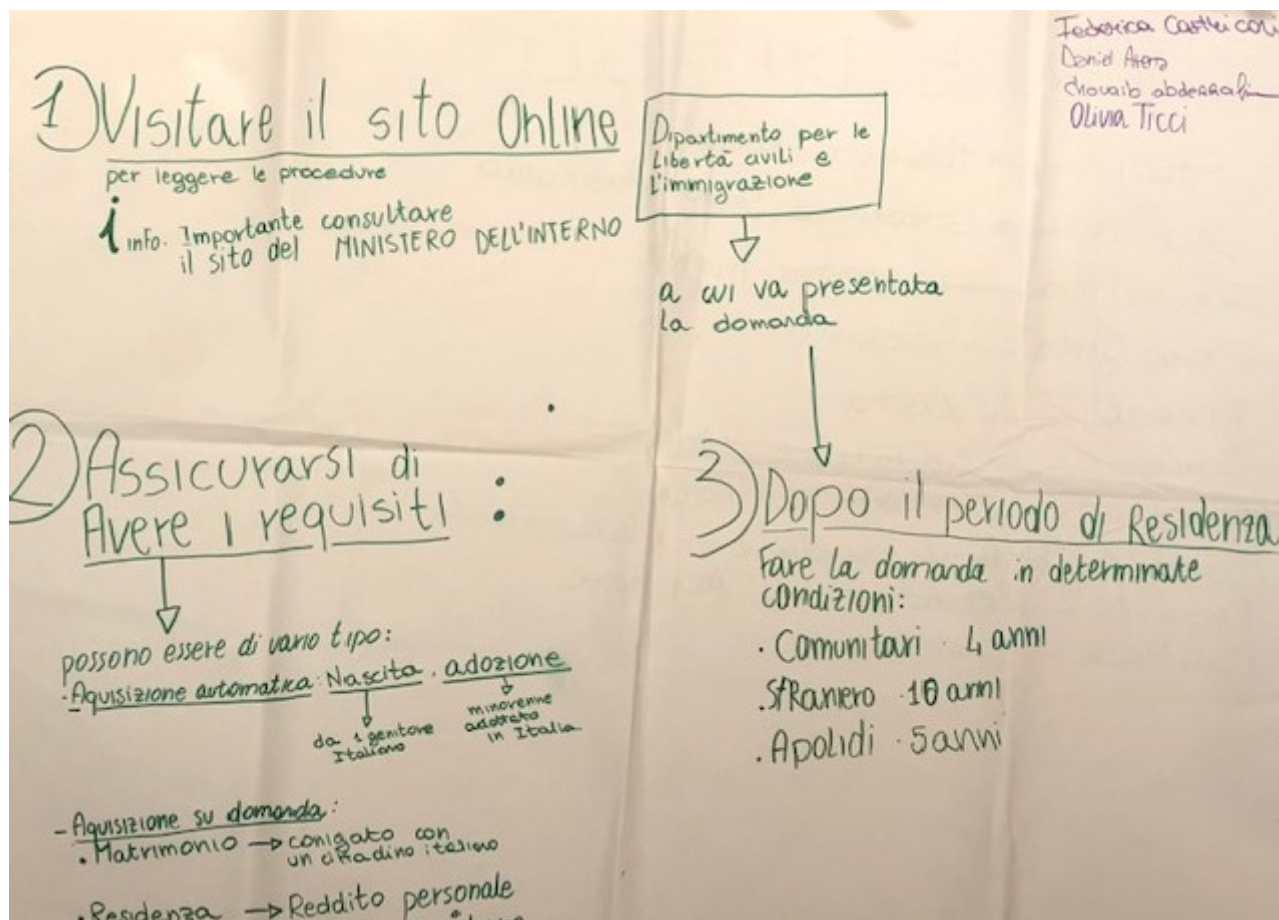 Federica
Daniel
Olivia Ticci
1) Visitare il sito Online
per leggere le procedure
i info. Importante consultare
il sito del MINISTERO DELL'INTERNO
Dipartimento per le
Libertà civili e
l'immigrazione
a cui va presentata
la domanda
2) Assicurarsi di
Avere i requisiti :
possono essere di vario tipo:
· Aquisizione automatica: Nascita · adozione
da 1 genitore
Italiano
minorenne
adottato
in Italia
- Aquisizione su domanda:
· Matrimonio → conigato con
un cittadino italiano
· Residenza → Reddito personale
3) Dopo il periodo di Residenza
Fare la domanda in determinate
condizioni:
· Comunitari · 4 anni
· StRaniero · 10 anni
· Apolidi · 5 anni